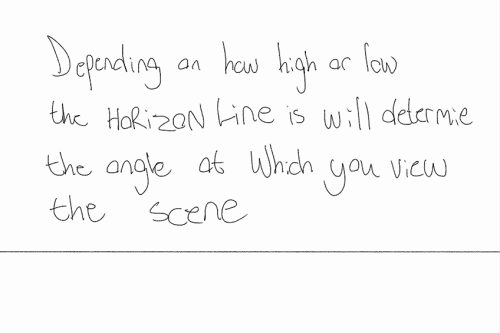 Depending on how high or low
the HORIZON Line is will determie
the angle at Which you view
the scene